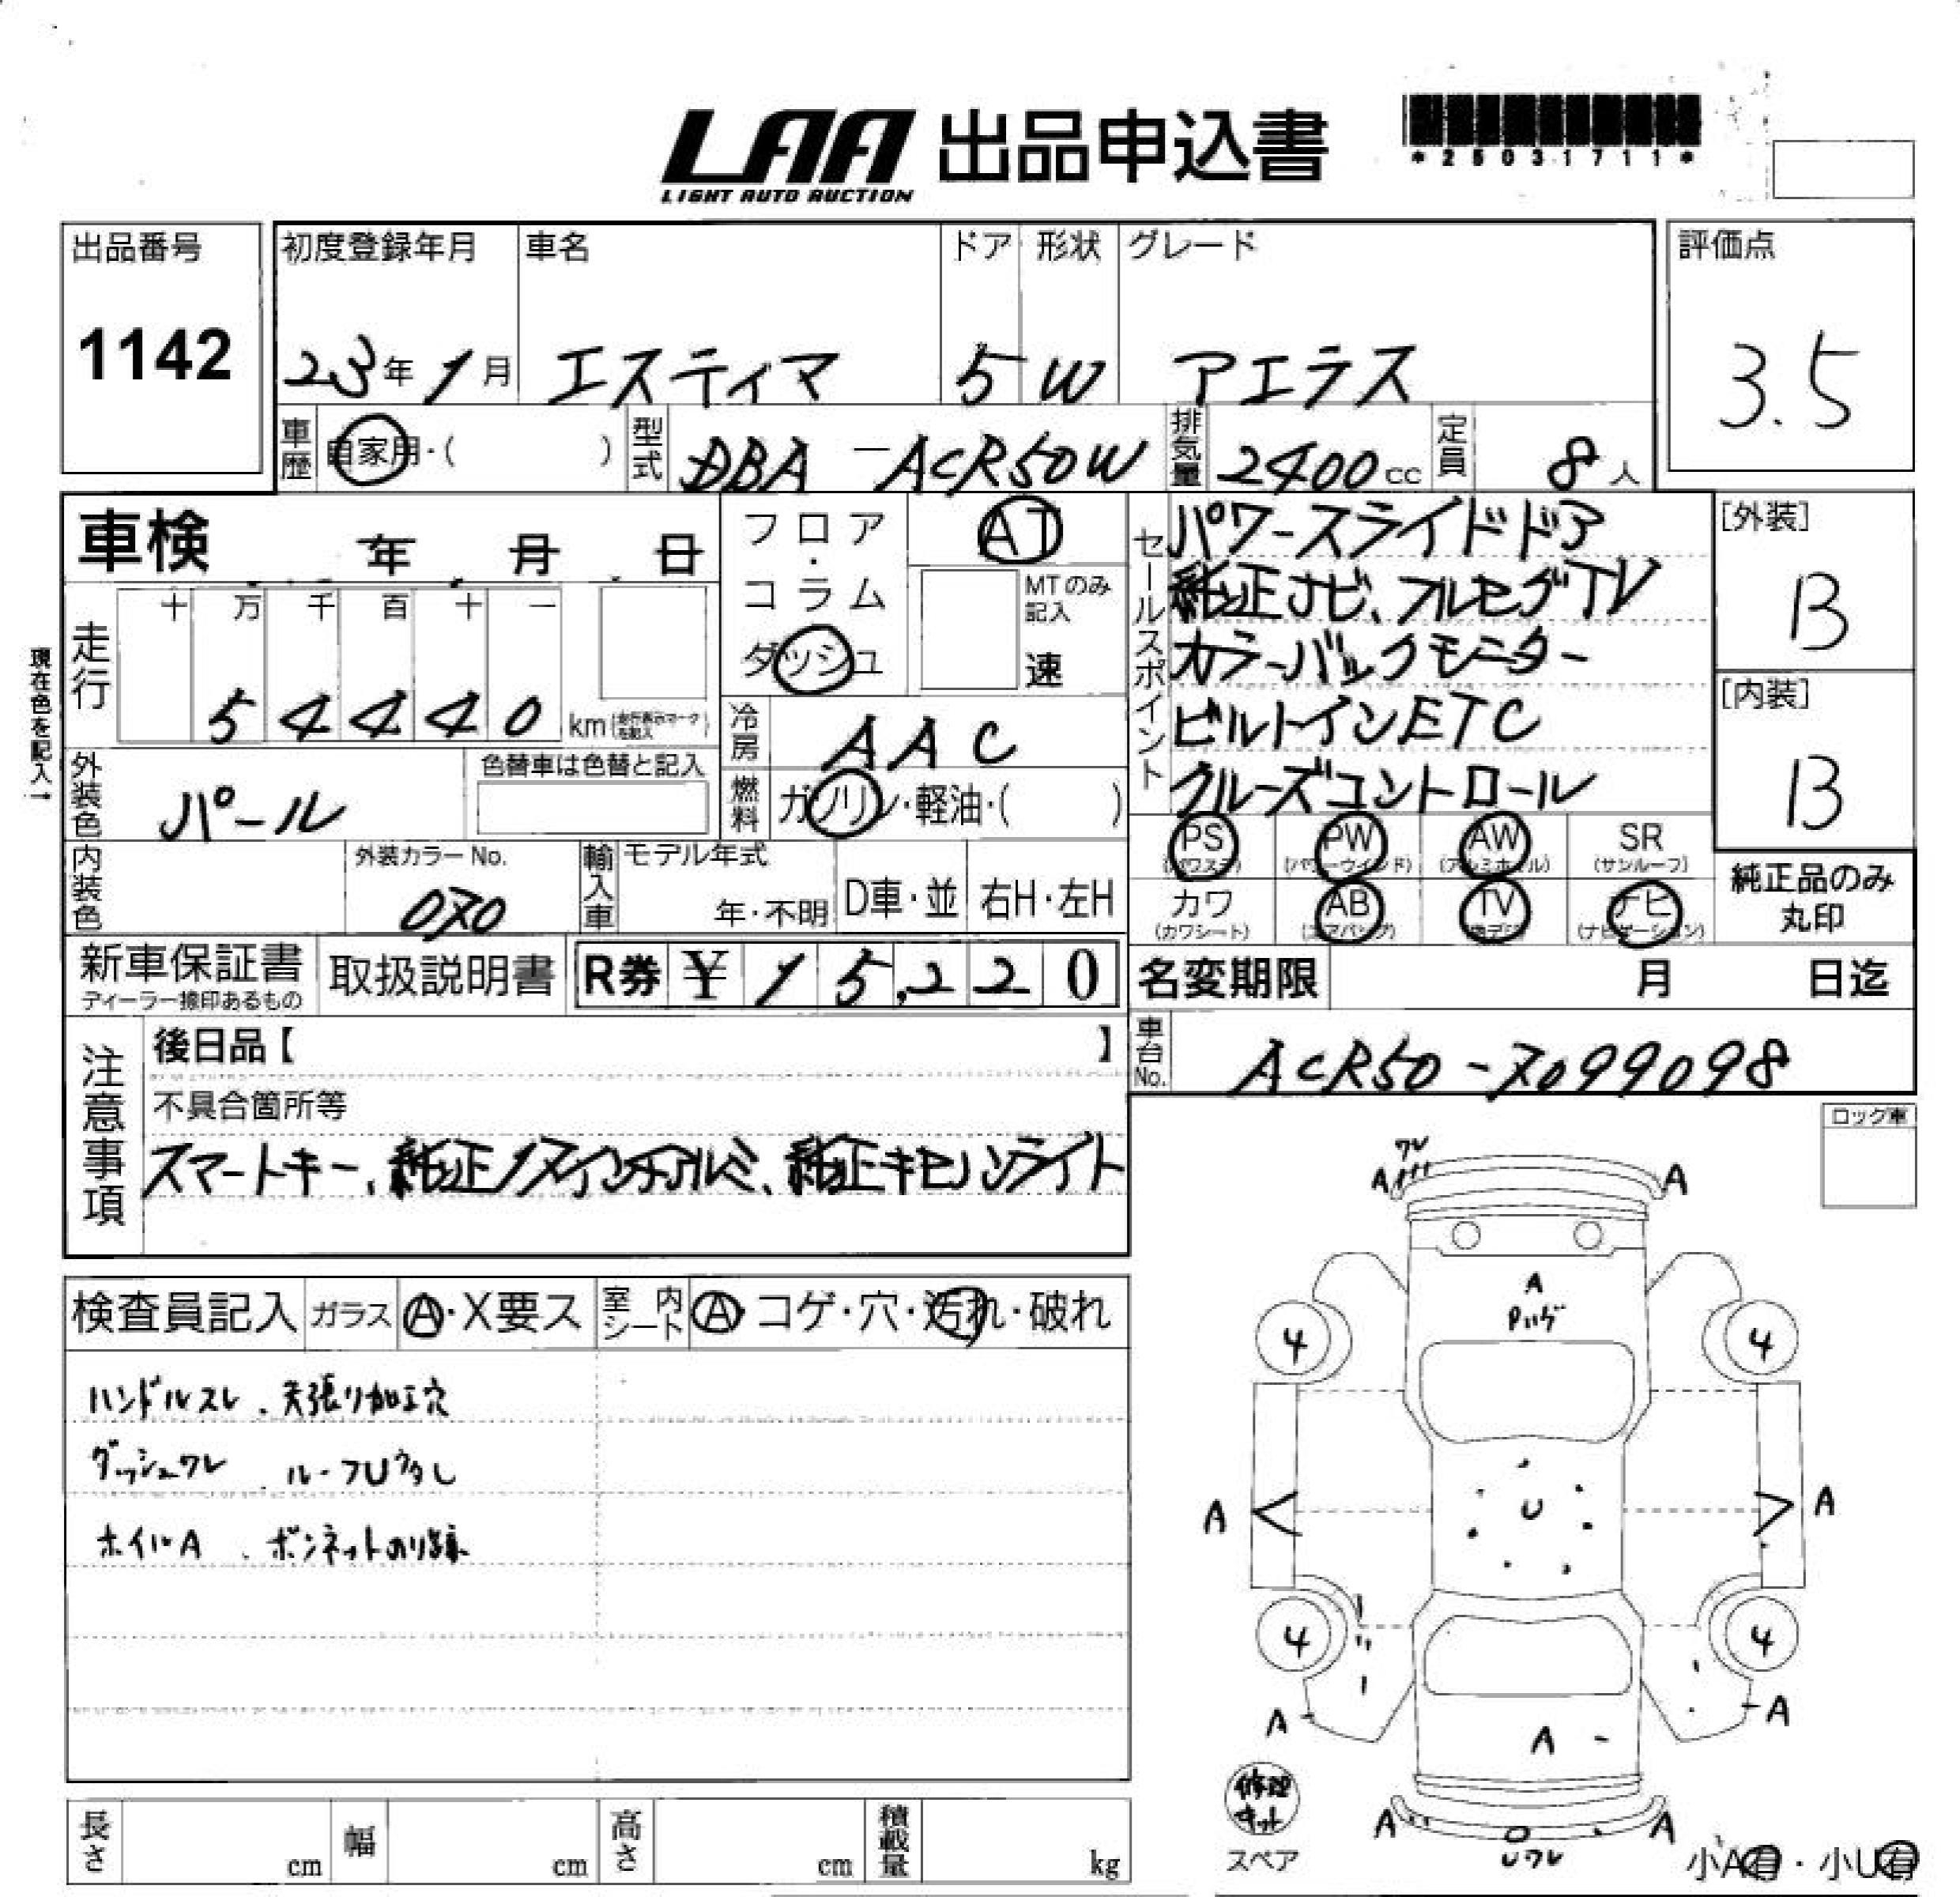 LAA 出品申込書
LIGHT AUTO AUCTION
*25031711*
出品番号
1142
初度登録年月
23年1月
車名
エスティマ
ドア
5
形状
W
グレード
アエラス
評価点
3.5
車歴
自家用・( )
型式
DBA-ACR50W
排気量
2400cc
定員
8人
車検 年 月 日
フロア・コラム
ダッシュ
AT
MTのみ記入
速
セールスポイント
パワースライドドア
純正ナビ、フルセグTV
カラーバックモニター
ビルトインETC
クルーズコントロール
[外装]
B
[内装]
B
現在色を記入→
走行
十 万 千 百 十 一
5 4 4 4 0 km
(走行表示マークを記入)
冷房
AAC
外装色
パール
色替車は色替と記入
燃料
ガソリン・軽油・( )
PS (パワステ)
PW (パワーウィンド)
AW (アルミホイル)
SR (サンルーフ)
カワ (カワシート)
AB (エアバッグ)
TV
ナビ (ナビゲーション)
純正品のみ
丸印
内装色
外装カラーNo.
070
輸入車
モデル年式
年・不明
D車・並
右H・左H
新車保証書
ディーラー捺印あるもの
取扱説明書
R券 ¥15,220
名変期限 月 日迄
注意事項
後日品【 】
不具合箇所等
スマートキー、純正17インチアルミ、純正キセノンライト
車台No.
ACR50-7099098
ロック車
検査員記入
ガラス
A・X要ス
室内シート
A・コゲ・穴・汚れ・破れ
ハンドルスレ、天張り加工穴
ダッシュワレ、ルーフUタタシ
ホイルA、ボンネットのり跡
ワレ
A
A
A
Pハゲ
4
4
A
U
A
4
4
A
A
A
A
A
Uワレ
修理キット
スペア
小A有・小U有
長さ cm
幅 cm
高さ cm
積載量 kg